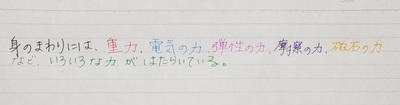 身のまわりには、重力、電気の力、弾性の力、摩擦の力、磁石の力
など、いろいろな力がはたらいている。